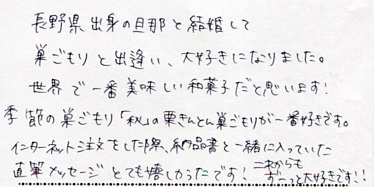 長野県出身の旦那と結婚して
巣ごもりと出逢い、大好きになりました。
世界で一番美味しい和菓子だと思います!
季節の巣ごもり「秋」の栗きんとん巣ごもりが一番好きです。
インターネット注文をした際、納品書と一緒に入っていた
直筆メッセージとても嬉しかったです! これからも
ずーっと大好きです!!